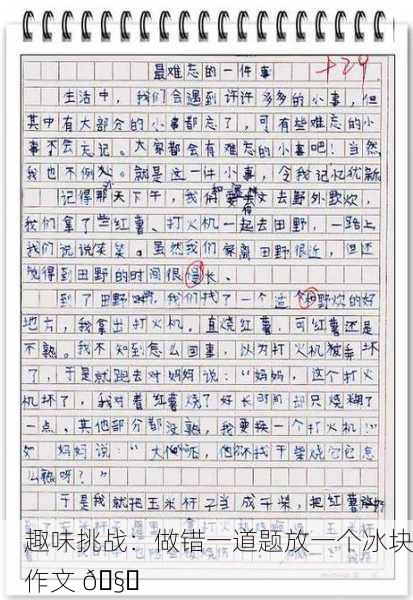 +29
最难忘的一件事
生活中，我们会遇到许许多多的小事，但
其中有大部分的小事都忘了，可有些难忘的小
事不会忘记。大家都会有难忘的小事吧！当然
我也不例外。就是这一件小事，令我记忆犹新
记得那天下午，我们 去野外野炊，
我们拿了些红薯、打火机一起去田野，一路上
我们说说笑笑。虽然我们家离田野很近，但还
觉得到田野的时间很 长。
到了田野 ，我们找了一个适 野炊的好
地方，我拿出打火机。直烧红薯，可红薯还是
不熟。我不知到怎么回事，以为打火机被弄坏
了，于是就跑去对妈妈说：“妈妈，这个打火
机坏了，我对着红薯烧了好长时间却只烧糊了
一点。其他部分都没熟，我要换一个打火机！”
妈妈说：“大 ，你 找干柴烧它它怎
么熟呀？”
于是我就把玉米杆子当成干柴，把红薯
趣味挑战：做错一道题放一个冰块
作文 ð§